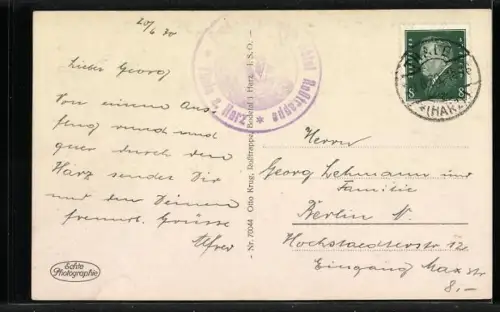 20/6 30
Lieber Georg
Von einem Aus-
flug rund und
quer durch den
Harz sendet Dir
und den Deinen
freundl. Grüsse
Alfred
Echte
Photographie
Roßtrappe
- Nr. 77044 Otto Krug, Roßtrappe, Bodetal i. Harz - I. S. O. -
8 8
THALE
(HARZ)
Herrn
Georg Lehmann und
Familie
Berlin N.
Hochstaedterstr 12
Eingang Max str
8.-